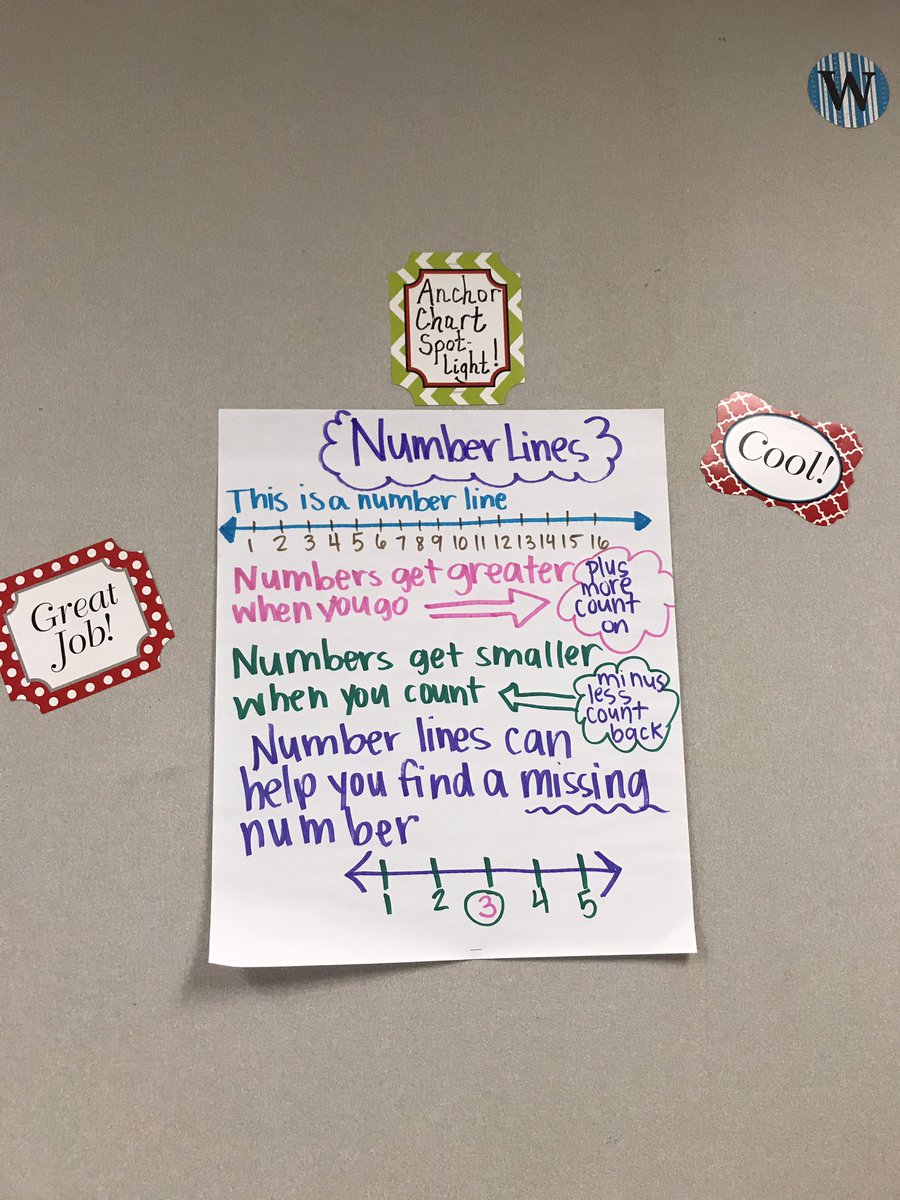 W
Anchor
Chart
Spot-
Light!
Number Lines
This is a number line
1 2 3 4 5 6 7 8 9 10 11 12 13 14 15 16
Numbers get greater
when you go
plus
more
count
on
Numbers get smaller
when you count
minus
less
count
back
Number lines can
help you find a missing
number
1 2 3 4 5
Cool!
Great
Job!